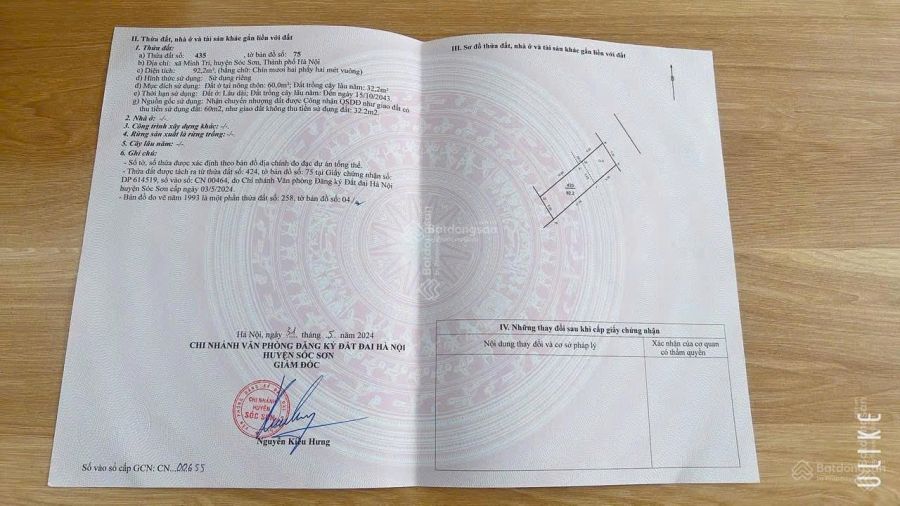 II. Thửa đất, nhà ở và tài sản khác gắn liền với đất
1. Thửa đất:
a) Thửa đất số: 435 tờ bản đồ số: 75
b) Địa chỉ: xã Minh Trí, huyện Sóc Sơn, Thành phố Hà Nội
c) Diện tích: 92,2m², (bằng chữ: Chín mươi hai phẩy hai mét vuông)
d) Hình thức sử dụng: Sử dụng riêng
đ) Mục đích sử dụng: Đất ở tại nông thôn: 60,0m²; Đất trồng cây lâu năm: 32,2m²
e) Thời hạn sử dụng: Đất ở: Lâu dài; Đất trồng cây lâu năm: Đến ngày 15/10/2043.
g) Nguồn gốc sử dụng: Nhận chuyển nhượng đất được Công nhận QSDĐ như giao đất có
thu tiền sử dụng đất: 60m2, như giao đất không thu tiền sử dụng đất: 32.2m2.
2. Nhà ở: -/-
3. Công trình xây dựng khác: -/-.
4. Rừng sản xuất là rừng trồng: -/-.
5. Cây lâu năm: -/-
6. Ghi chú:
- Số tờ, số thửa được xác định theo bản đồ địa chính đo đạc dự án tổng thể.
- Thửa đất được tách ra từ thửa đất số: 424, tờ bản đồ số: 75 tại Giấy chứng nhận số:
DP 614519, số vào sổ: CN 00464, do Chi nhánh Văn phòng Đăng ký Đất đai Hà Nội
huyện Sóc Sơn cấp ngày 03/5/2024.
- Bản đồ đo vẽ năm 1993 là một phần thửa đất số: 258, tờ bản đồ số: 04
Hà Nội, ngày 31 tháng 5 năm 2024
CHI NHÁNH VĂN PHÒNG ĐĂNG KÝ ĐẤT ĐAI HÀ NỘI
HUYỆN SÓC SƠN
GIÁM ĐỐC
CHI NHÁNH
HUYỆN
SÓC SƠN
Nguyễn Kiều Hưng
Số vào sổ cấp GCN: CN 00655
III. Sơ đồ thửa đất, nhà ở và tài sản khác gắn liền với đất
435
92.2
IV. Những thay đổi sau khi cấp giấy chứng nhận
Nội dung thay đổi và cơ sở pháp lý
Xác nhận của cơ quan
có thẩm quyền
Batdongsan
Batdongsan
Batdongsan
ULIKE